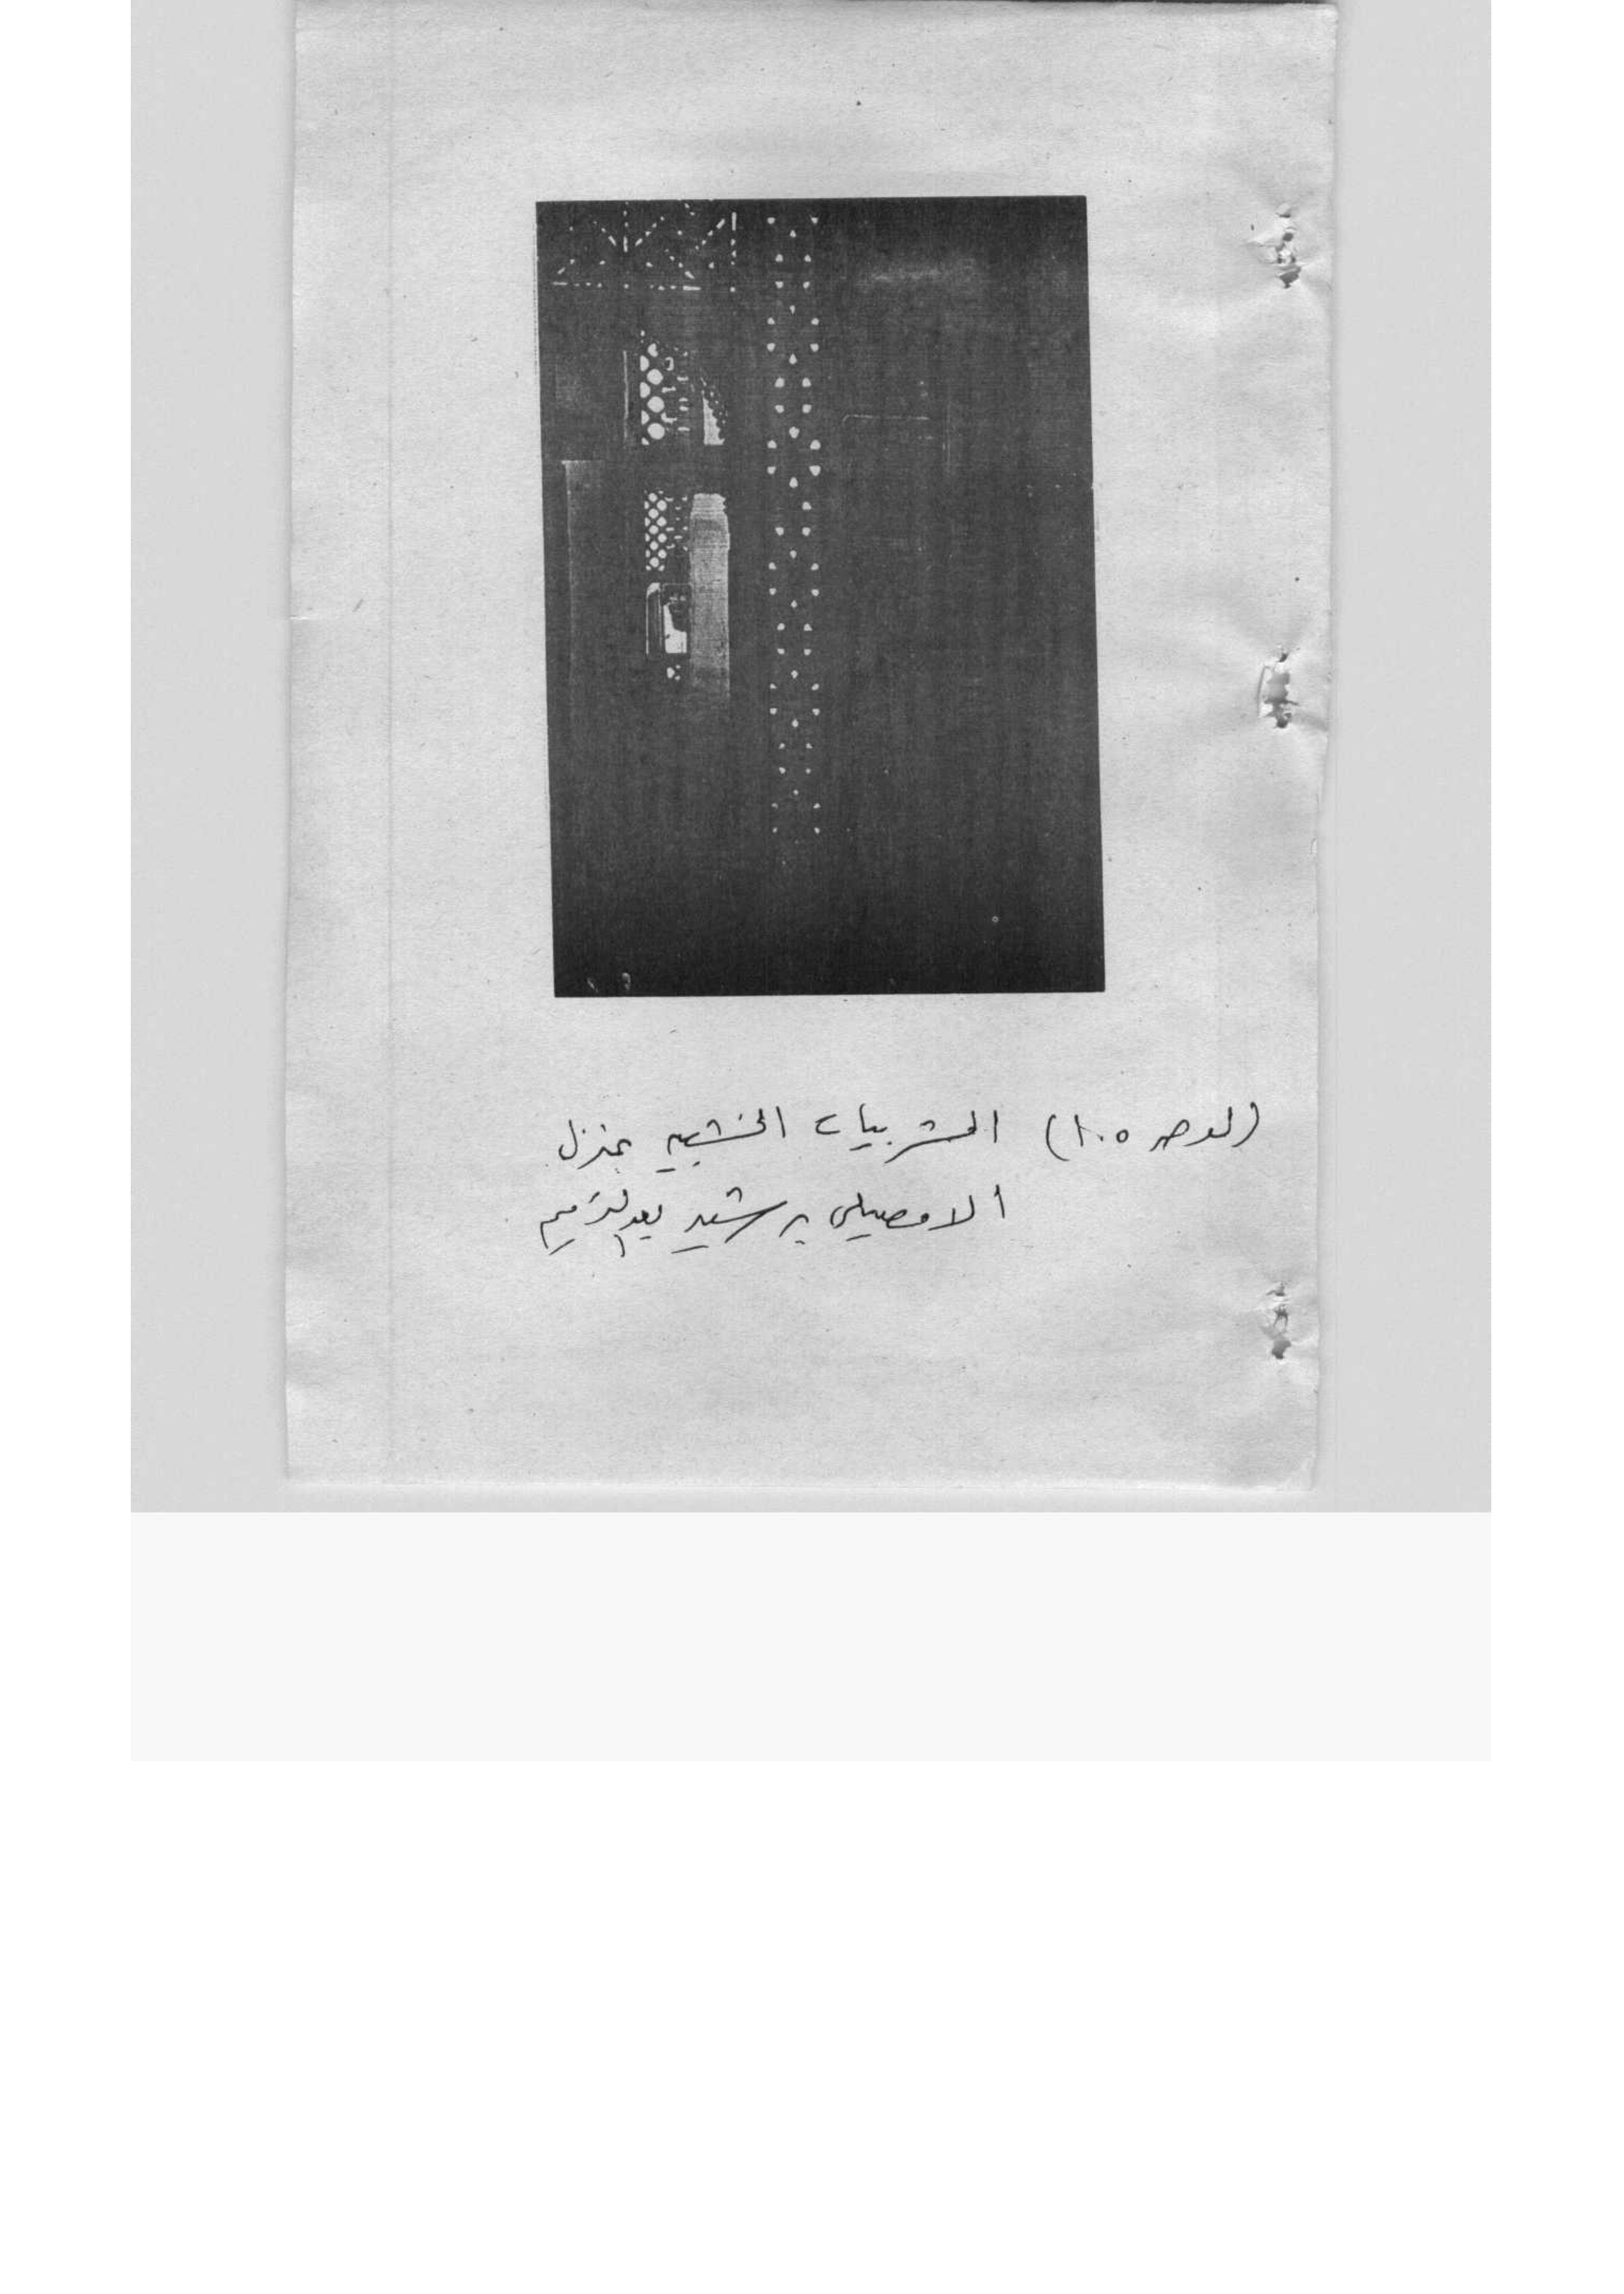 (لوحه ١٠٥) المشربيات الخشبيه بمنزل
الامصيلى برشيد بعد الترميم